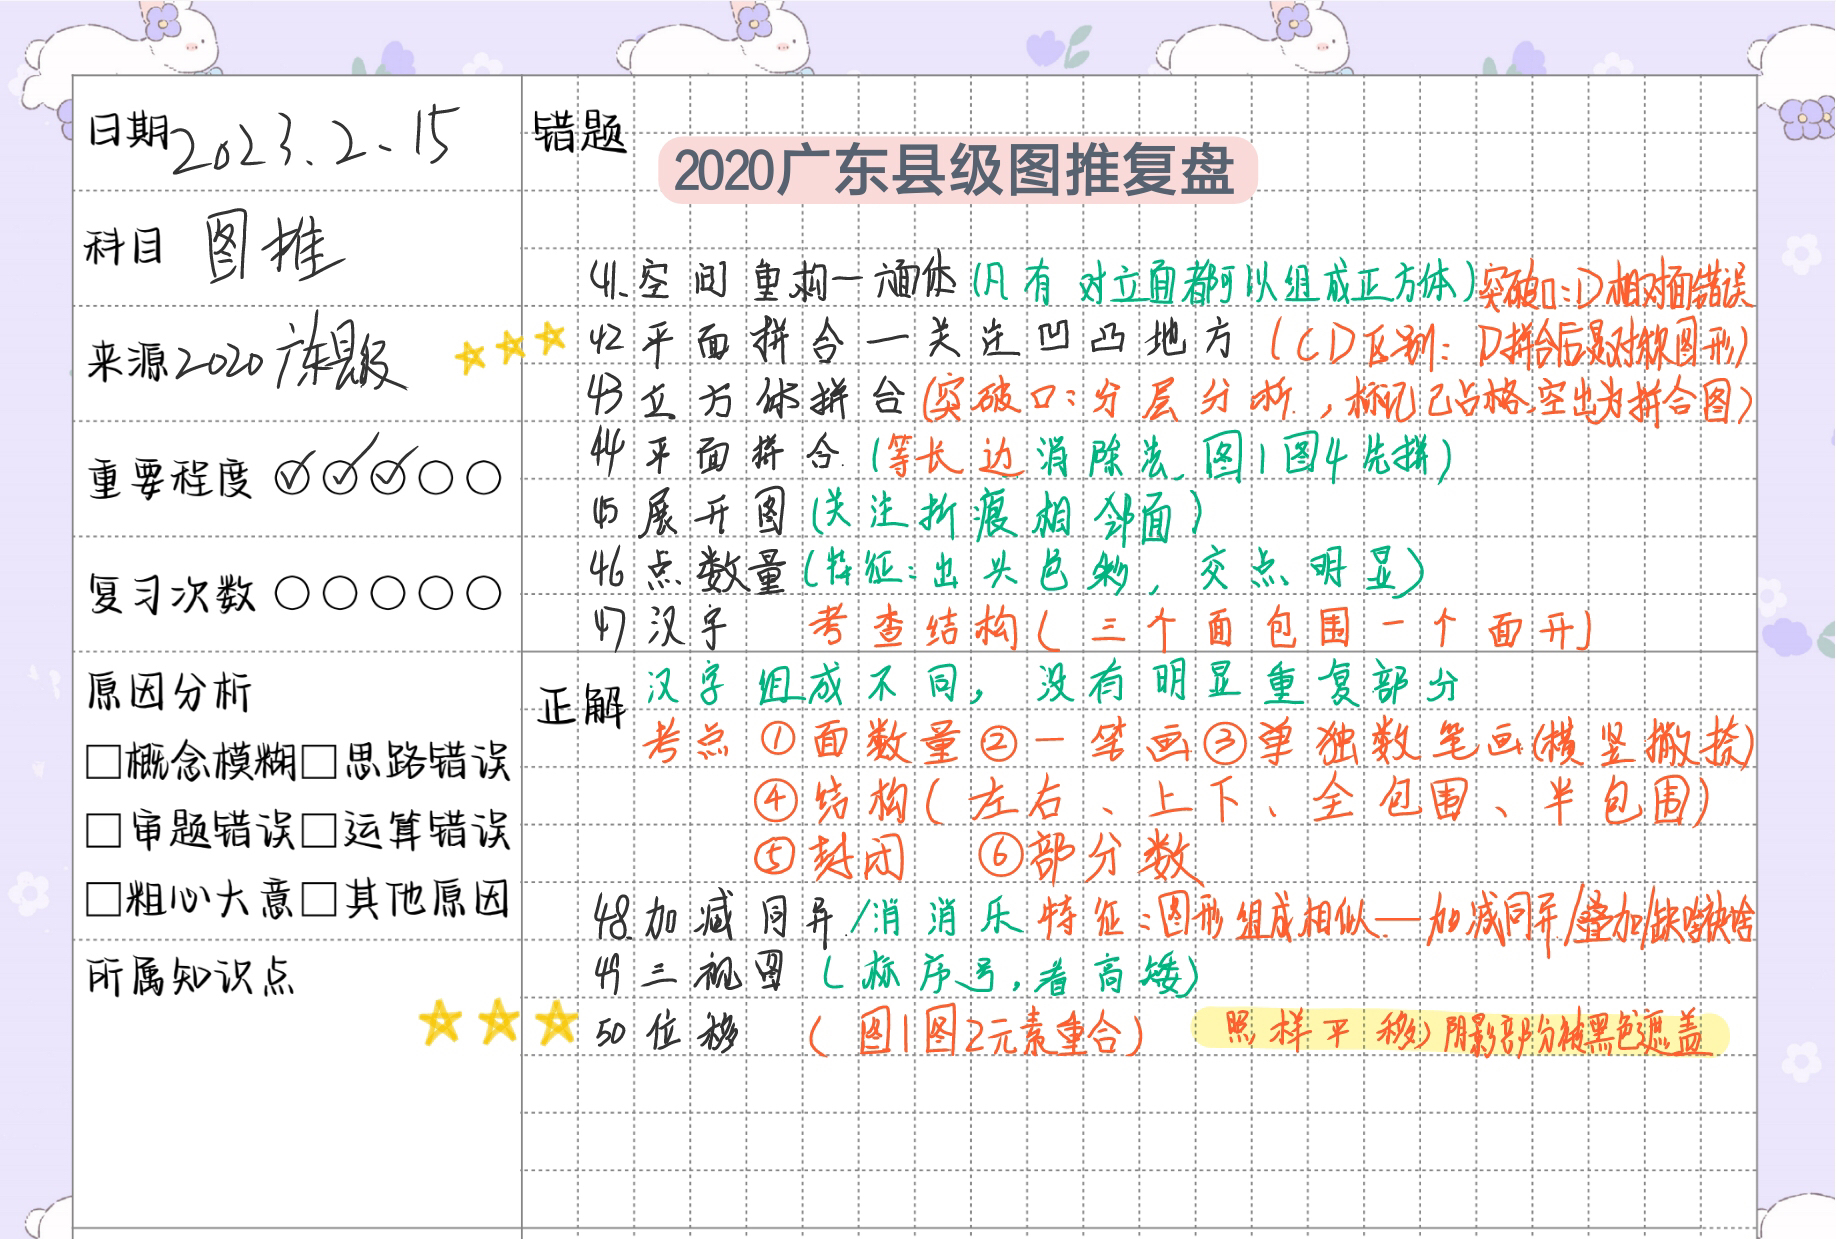 日期 2023.2.15
科目 图推
来源 2020广东县级
重要程度
复习次数
原因分析
□概念模糊□思路错误
□审题错误□运算错误
□粗心大意□其他原因
所属知识点
错题
2020广东县级图推复盘
41.空间重构一六面体(凡有对立面都可以组成正方体)突破口:D相对面错误
42平面拼合一关注凹凸地方(CD区别:D拼合后是对称图形)
43立方体拼合(突破口:分层分析,标记已占格,空出为拼合图)
44平面拼合.(等长边消除法.图1图4先拼)
45展开图(关注折痕相邻面)
46点数量(特征:出头色彩,交点明显)
47汉字 考查结构(三个面包围一个面开)
正解
汉字组成不同,没有明显重复部分
考点①面数量②一笔画③单独数笔画(横竖撇捺)
④结构(左右、上下、全包围、半包围)
⑤封闭 ⑥部分数
48.加减同异/消消乐 特征:图形组成相似——加减同异/叠加/缺啥缺啥
49三视图(标序号,看高矮)
50位移(图1图2元素重合) 照样平移,阴影部分被黑色遮盖